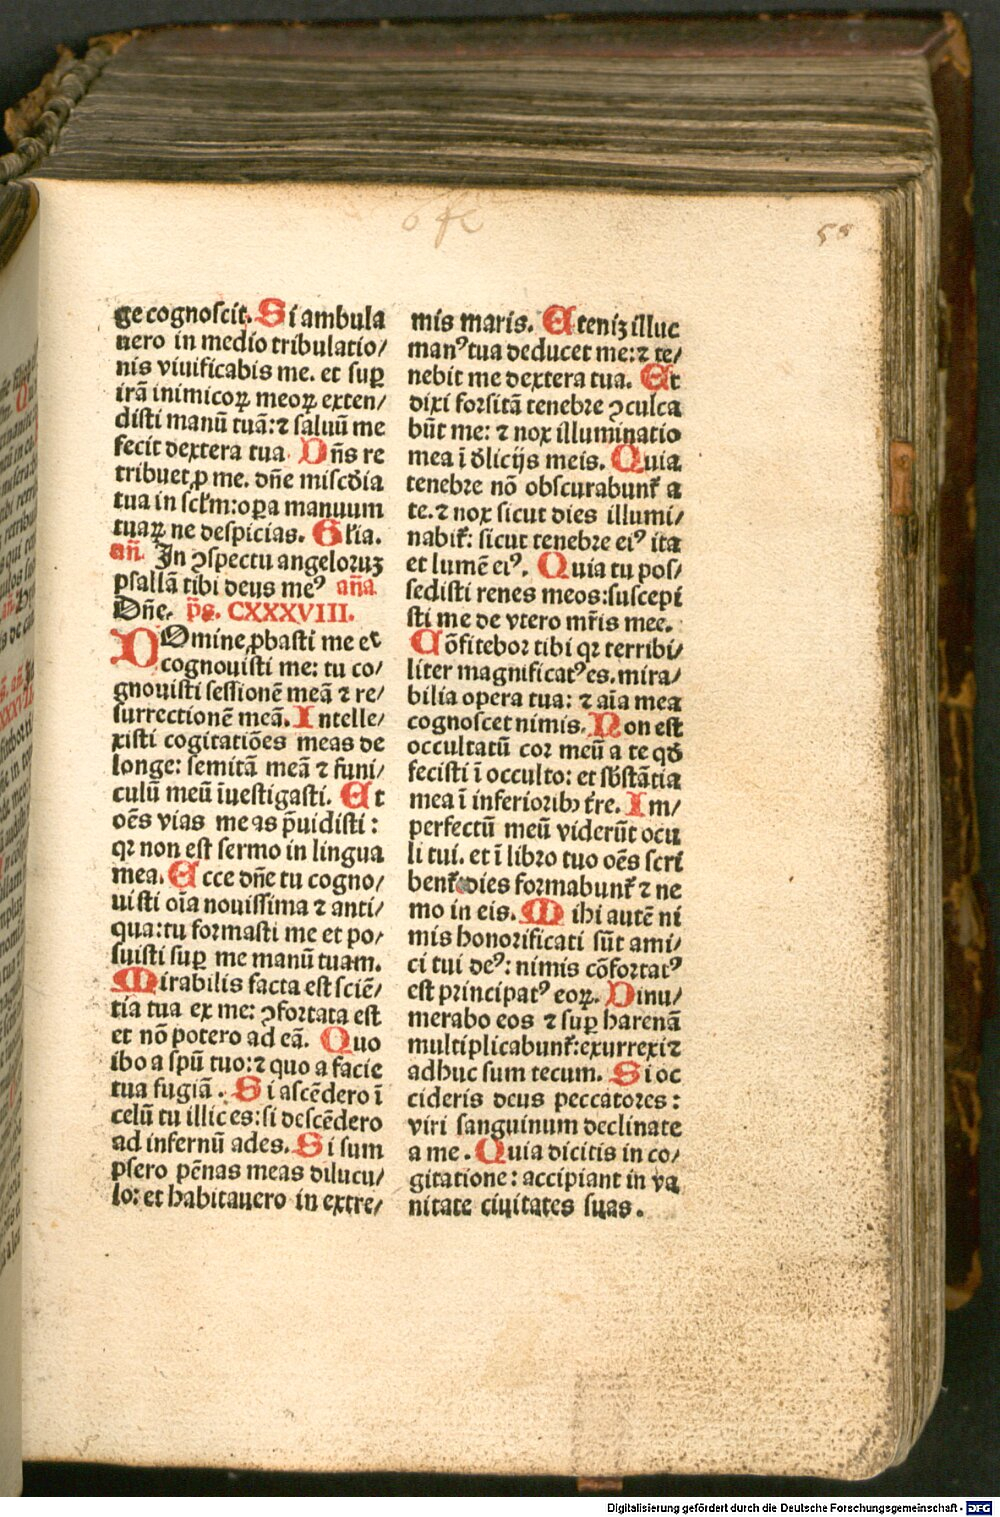 58
ge cognoscit. Si ambula
uero in medio tribulatio/
nis viuificabis me. et suꝑ
irā inimicoꝝ meoꝝ exten/
disti manū tuā: ⁊ saluū me
fecit dextera tua. Dn̄s re
tribuet ꝓ me. dn̄e misc̄dia
tua in sc̄lm: oꝑa manuum
tuaꝝ ne despicias. Gl̄ia.
an̄. In ꝯspectu angeloruꝫ
psallā tibi deus meꝰ an̄a
Dn̄e. ps̄. CXXXVIII.
DOmine ꝓbasti me et
cognouisti me: tu co/
gnouisti sessionē meā ⁊ re/
surrectionē meā. Intelle/
xisti cogitatiōes meas de
longe: semitā meā ⁊ funi/
culū meū īuestigasti. Et
oēs vias meas p̄uidisti:
qꝛ non est sermo in lingua
mea. Ecce dn̄e tu cogno/
uisti oīa nouissima ⁊ anti/
qua: tu formasti me et po/
suisti suꝑ me manū tuam.
Mirabilis facta est sciē/
tia tua ex me: ꝯfortata est
et nō potero ad eā. Quo
ibo a spū tuo: ⁊ quo a facie
tua fugiā. Si ascēdero ī
celū tu illic es: si descēdero
ad infernū ades. Si sum
psero pēnas meas dilucu/
lo: et habitauero in extre/
mis maris. Eteniꝫ illuc
manꝰ tua deducet me: ⁊ te/
nebit me dextera tua. Et
dixi forsitā tenebre ꝯculca
būt me: ⁊ nox illuminatio
mea ī d̄licijs meis. Quia
tenebre nō obscurabunt̄ a
te. ⁊ nox sicut dies illumi/
nabit̄: sicut tenebre eiꝰ ita
et lumē eiꝰ. Quia tu pos/
sedisti renes meos: suscepi
sti me de vtero mr̄is mee.
Cōfitebor tibi qꝛ terribi/
liter magnificatꝰ es. mira/
bilia opera tua: ⁊ aīa mea
cognoscet nimis. Non est
occultatū cor meū a te qd̄
fecisti ī occulto: et sb̄stātia
mea ī inferioribꝫ t̄re. Im/
perfectū meū viderūt ocu
li tui. et ī libro tuo oēs scri
bent̄ dies formabunt̄ ⁊ ne
mo in eis. Mihi autē ni
mis honorificati sūt ami/
ci tui deꝰ: nimis cōfortatꝰ
est principatꝰ eoꝝ. Dinu/
merabo eos ⁊ suꝑ harenā
multiplicabunt̄: exurrexi ⁊
adhuc sum tecum. Si oc
cideris deus peccatores:
viri sanguinum declinate
a me. Quia dicitis in co/
gitatione: accipiant in va
nitate ciuitates suas.
Digitalisierung gefördert durch die Deutsche Forschungsgemeinschaft - DFG